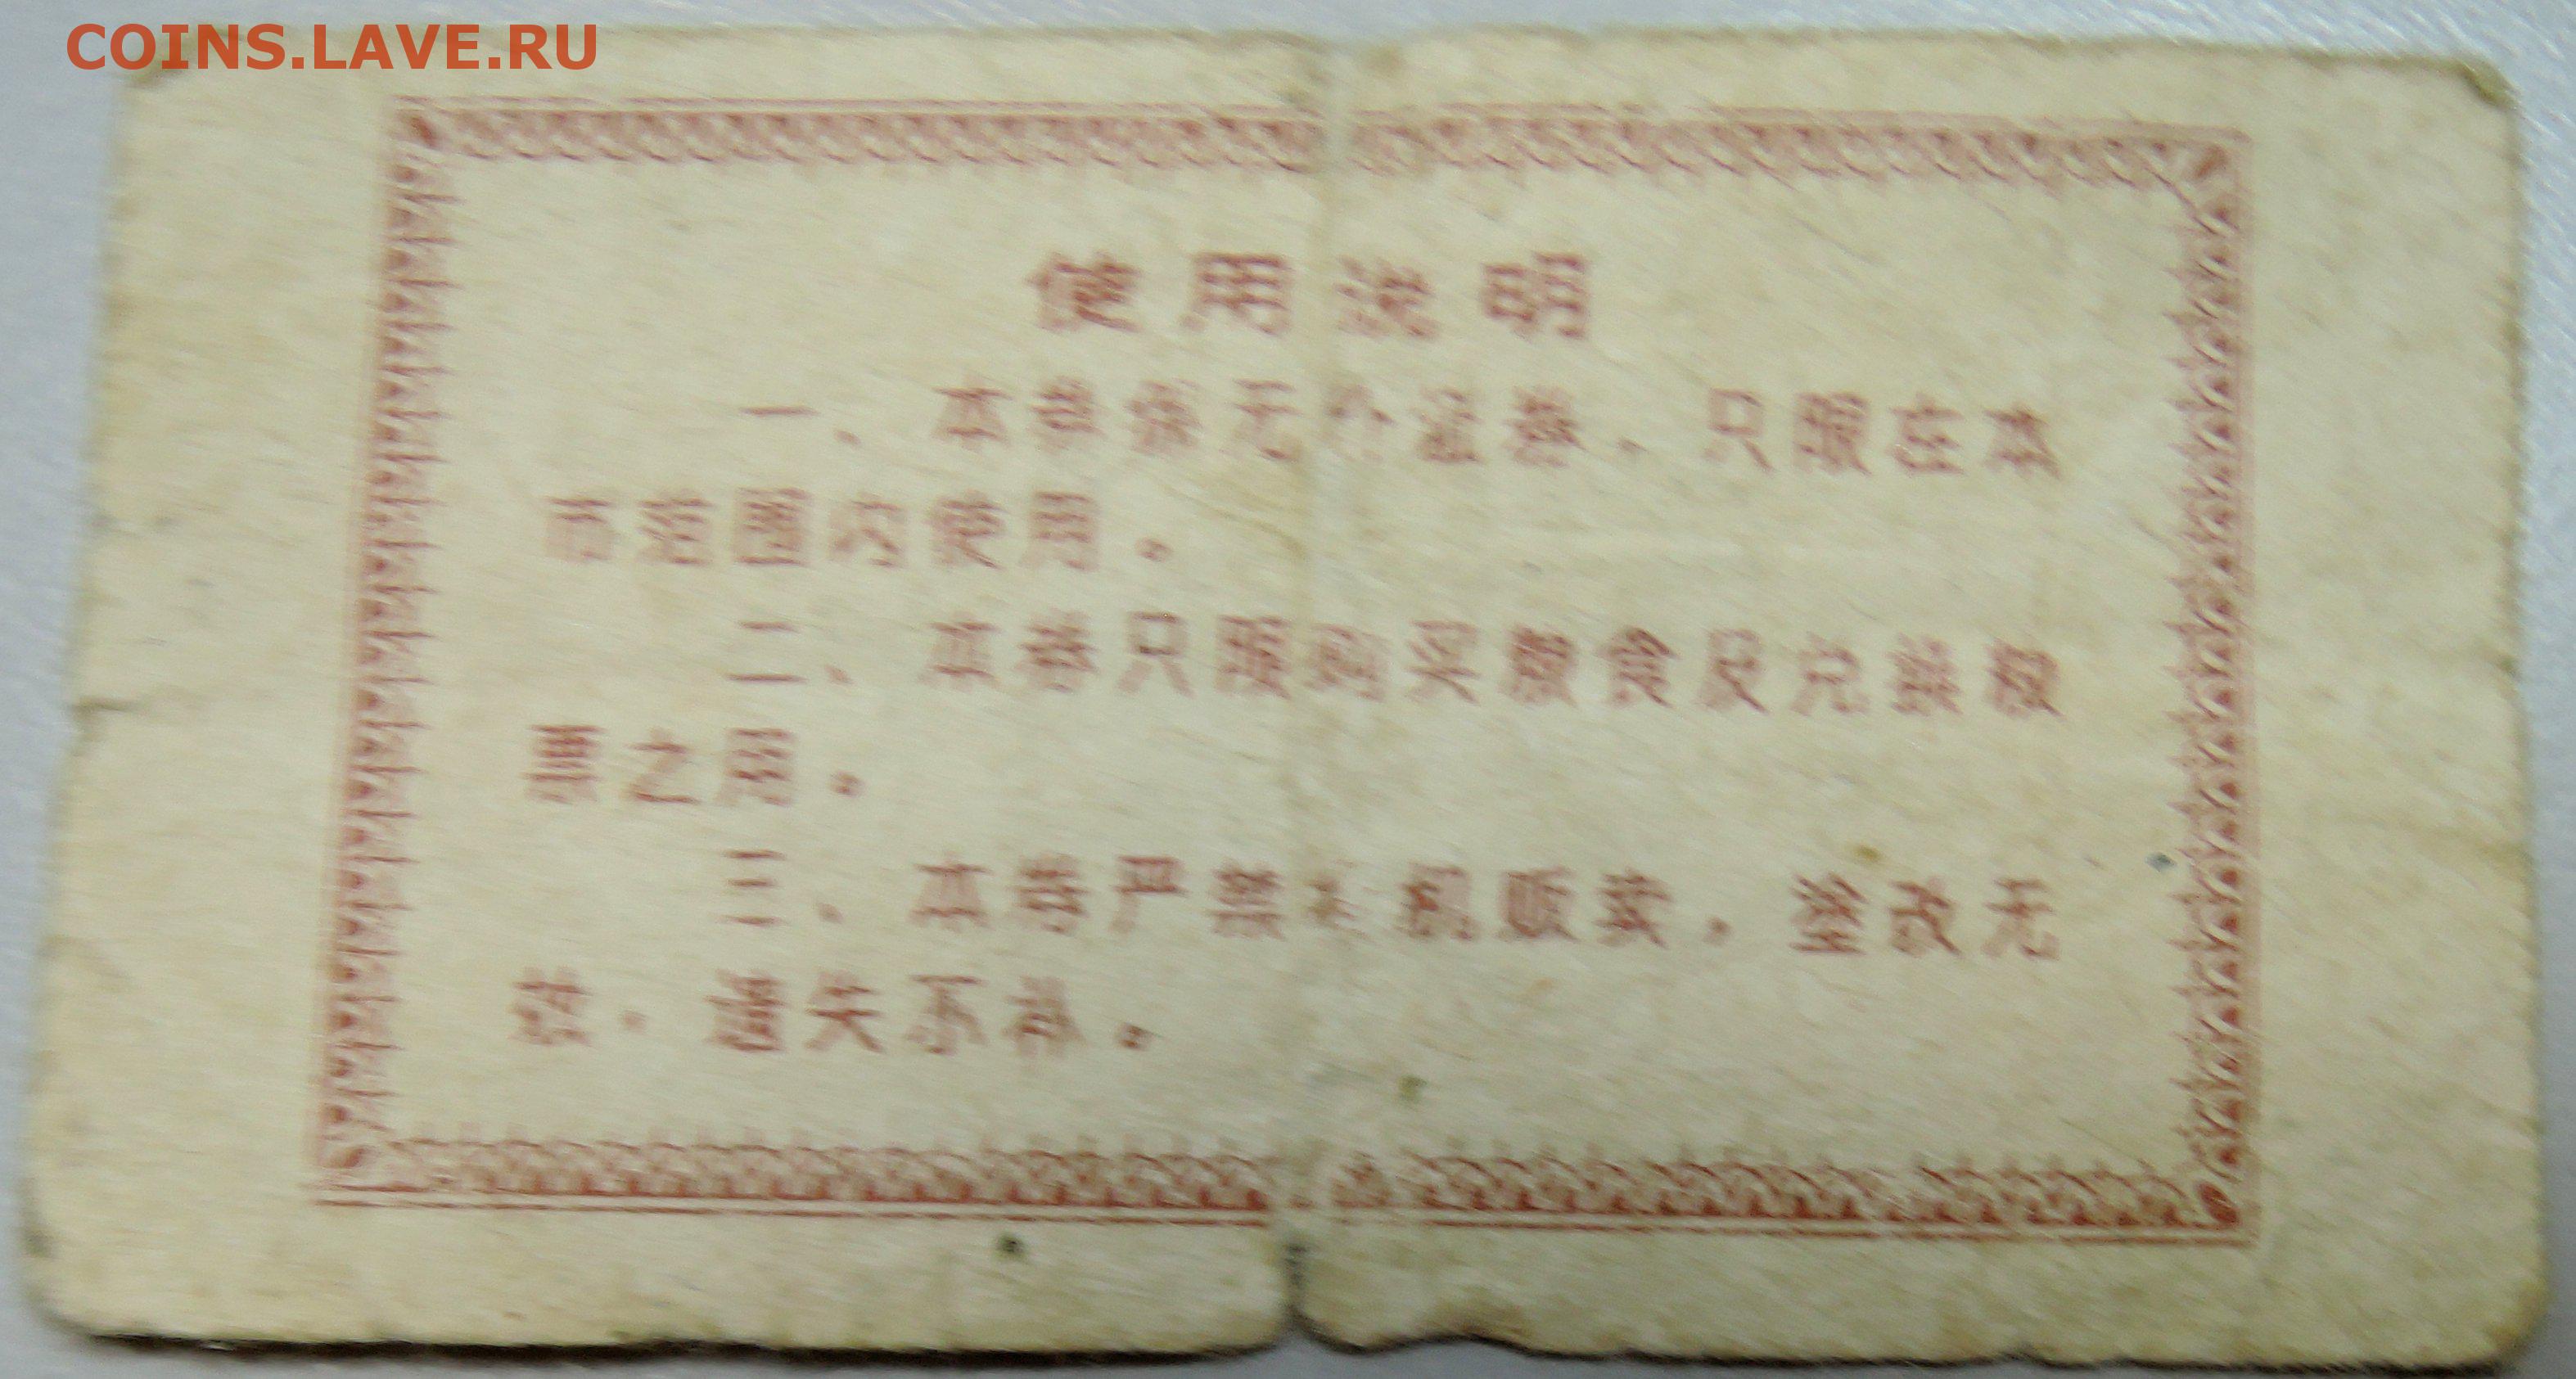 COINS.LAVE.RU
使用说明
一、本券系无价证券，只限在本
市范围内使用。
二、本券只限购买粮食及兑换粮
票之用。
三、本券严禁投机贩卖，涂改无
效，遗失不补。